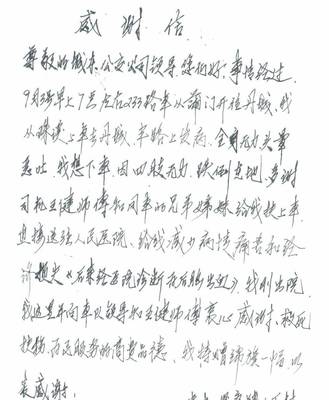 感谢信
尊敬的城东公交公司领导您们好: 事情经过
9月3号早上7点左右233路车从 门开往丹城, 我
从 上车去丹城, 半路上发病, 全身无力头晕
呕吐, 我想下车, 因四肢无力, 跌倒在地, 多谢
司机王建师傅和同车的兄弟姊妹, 给我扶上车
直接送往人民医院, 给我减少病情痛苦和经
济损失《后来经医院诊断为后脑出血》, 我刚出院
我这里并向车队领导和王建师傅衷心感谢, 救死
扶伤, 为民服务的高贵品德, 我特赠锦旗一幅, 以
表感谢.